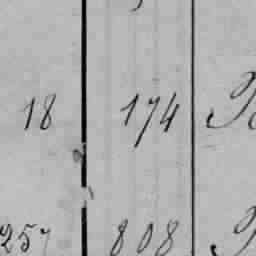 18 174
257 808